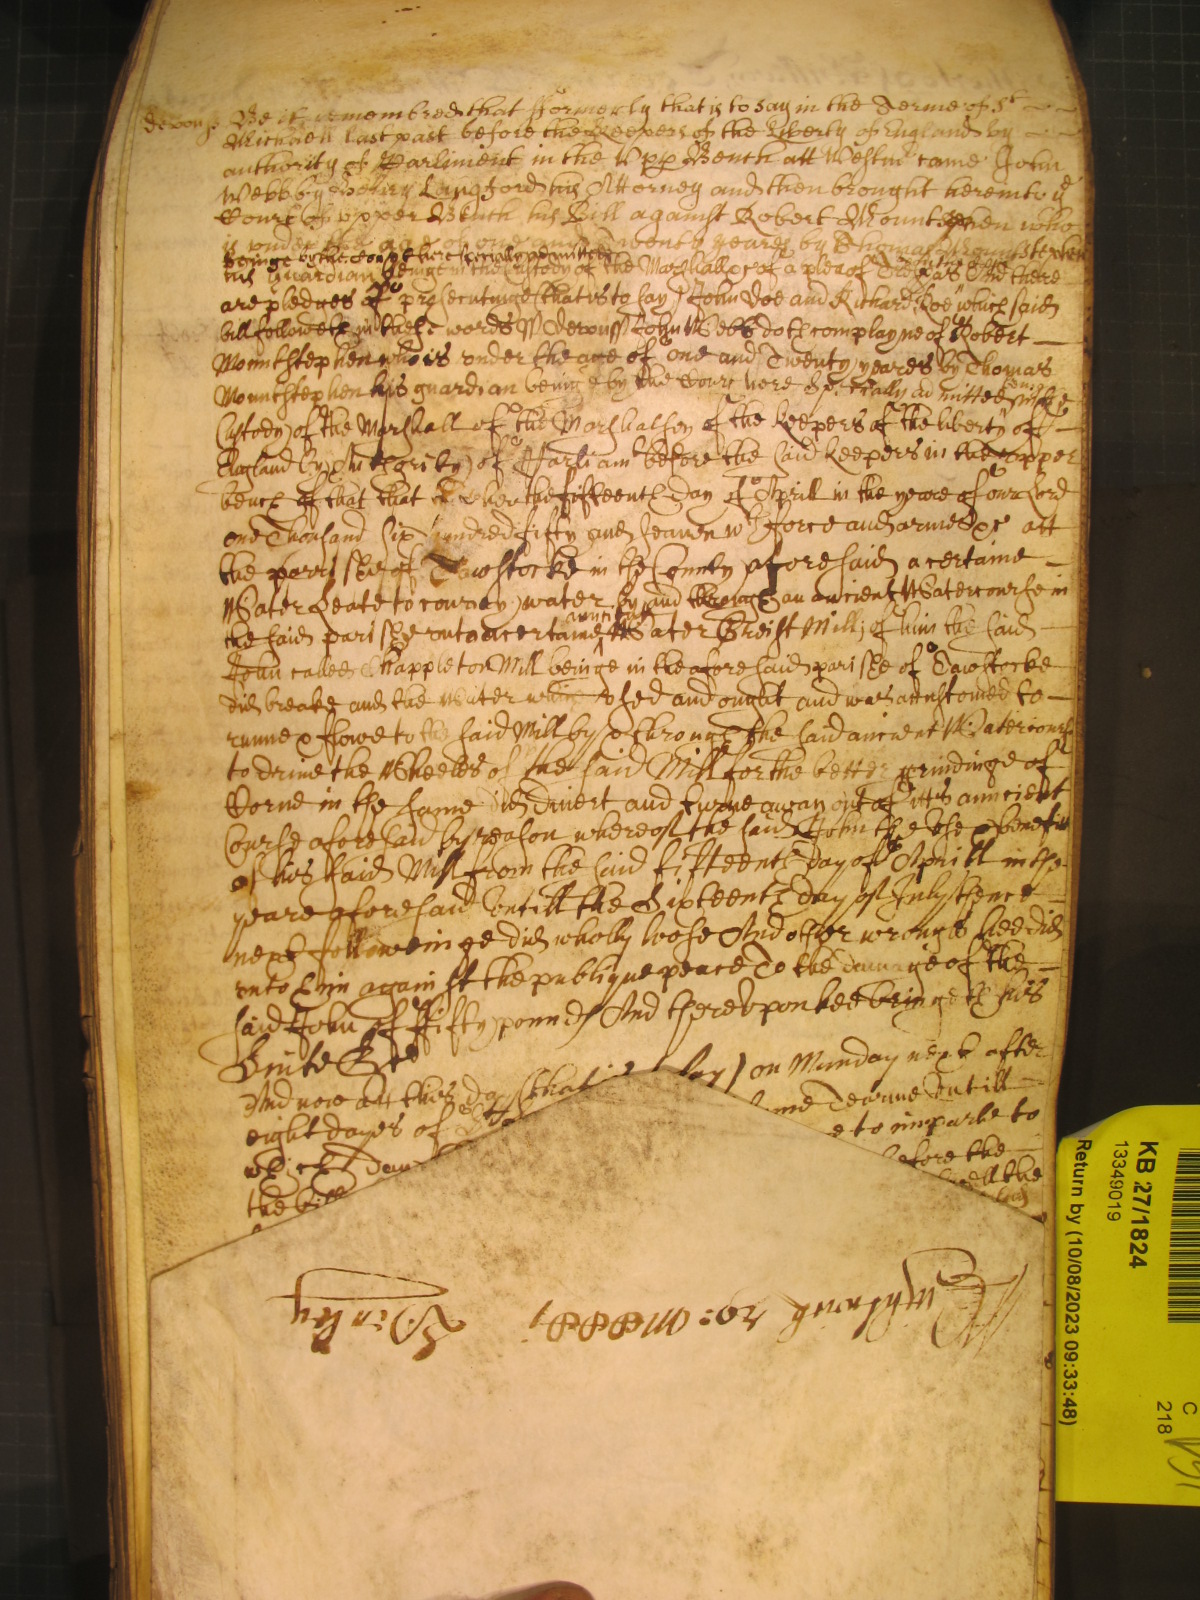 devons Be it remembred that fformerly that is to say in the Terme of St
Michaell last past before the keepers of the Liberty of England by
authority of Parliment in the Upp Bench att Westm came John
Webb by Henry Langford his Attorney and then brought here into ye
Court of upper Bench his Bill against Robert Mountstephen who
is under the age of one and Twenty yeares by Thomas Mountstephen
beinge by the Court here specially admitted
his guardian beinge in the custody of the Marshall &c of a plea of Trespas And there
are pledges of prosecutinge (that is to say) John Doe and Richard Roe which said
bill followeth in these words ss devons ss John Webb doth complayne of Robert
Mountstephen who is under the age of one and Twenty yeares by Thomas
Mountstephen his guardian beinge by the Court here specially admitted beinge in the
Custody of the Marshall of the Marshalsey of the keepers of the liberty of
England by Authority of Parliamt before the said keepers in the upper
bench of that that the fifteenth day of Aprill in the yeare of our Lord
one Thousand Six hundred fifty and seaven wth force and armes &c att
the parrishe of Tawstocke in the County aforesaid a certaine
Water Leate to convey water by and through an ancient Watercourse in
the said parishe unto a certaine auncient Water Greist Mill of him the said
John called Chappleton Mill beinge in the aforesaid parishe of Tawstocke
did breake and the Water used and ought and was accustomed to
runne & flowe to the said Mill by & through the said ancient Watercourse
to drive the Wheeles of the said Mill for the better grindinge of
Corne in the same did divert and turne away out of itts auncient
Course aforesaid by reason whereof the said John the use & benefitt
of his said Mill from the said fifteenth day of Aprill in the
yeare aforesaid untill the Sixteenth day of July thence
next followeinge did wholly loose And other wrongs hee did
unto him against the publique peace To the damage of the
said John of ffifty pounds And thereupon hee bringeth his
Suite &c
And now att this day (that is say) on Munday next after
eight dayes of same Tearme untill
which day e to imparle to
the bill before the
the